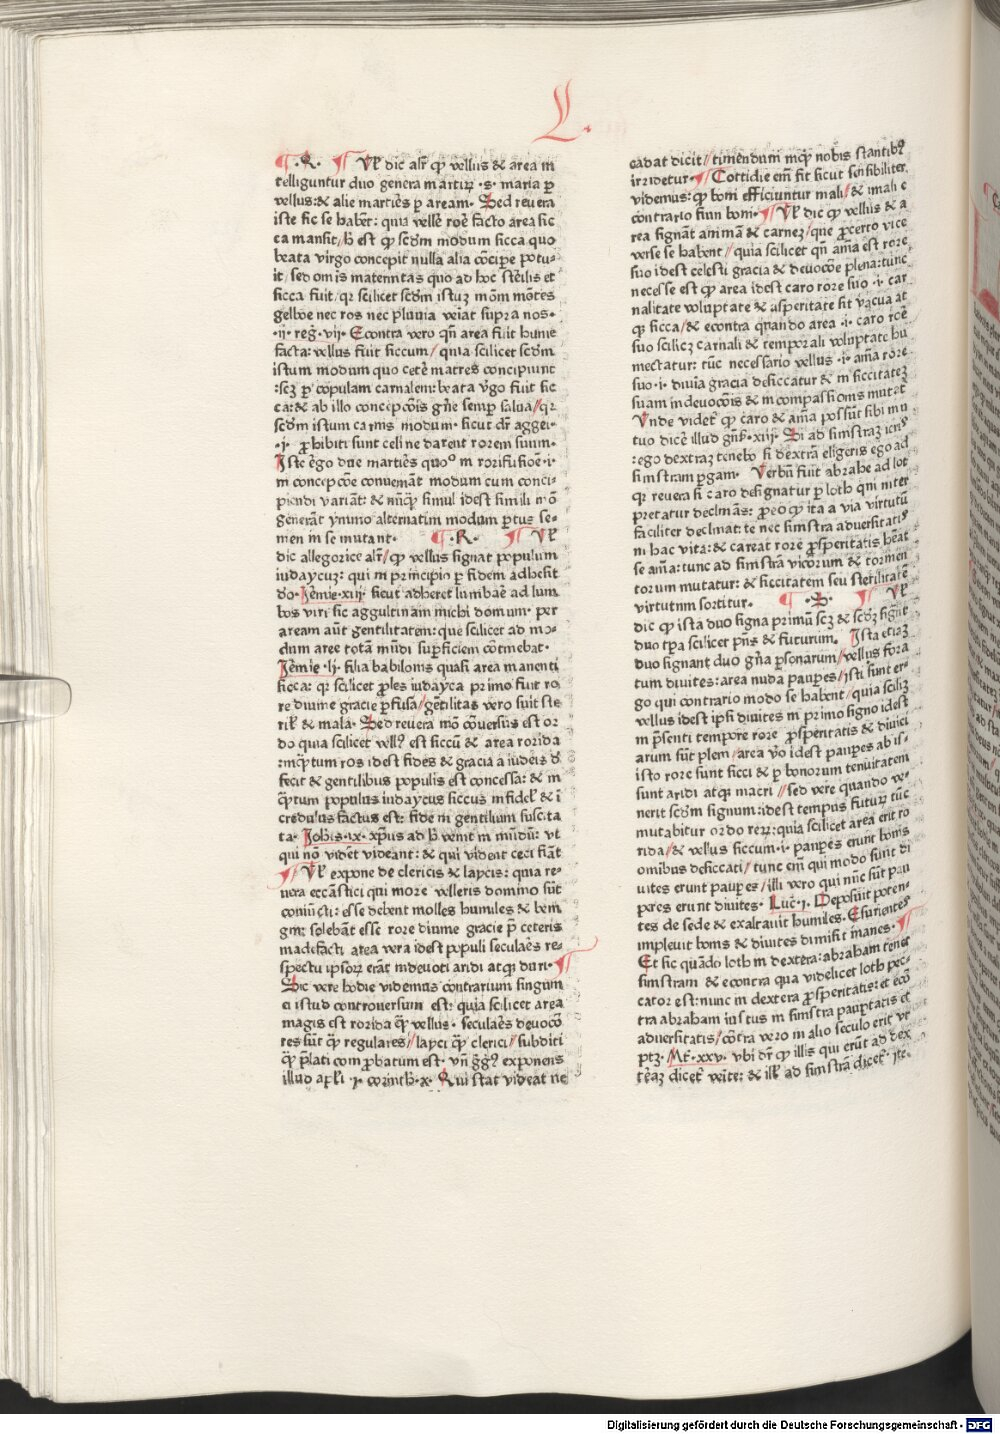 L.
·Q· Vl̓ dic alr̓ ꝙ vellus & area in
telliguntur duo genera martiꝝ ·s· maria ꝑ
vellus: & alie martiēs ꝑ aream· Sed reuera
iste sic se habēt: quia vellē roē facto area sic
ca mansit/ h̄ est ꝙ scd̄m modum sicca quo
beata virgo concepit nulla alia cōcipe potu-
it/ sed om̄is maternitas quo ad hoc sterilis et
sicca fuit/ qꝛ scilicet scd̄m istuꝫ mōm mōtes
gelboe nec ros nec pluuia veiāt supra nos·
·ii· reg̓· vij· Econtra vero qn̄ area fuit hume
facta: vellus fuit siccum/ quia scilicet scd̄m
istum modum quo ceteē matres concipiunt
:scꝫ ꝑ copulam carnalem: beata v̓go fuit sic
ca: & ab illo concepcōis gn̄e semꝑ salua/ qꝛ
scd̄m istum carnis modum· sicut dr̄ aggei·
·i· ꝓhibiti sunt celi ne darent rorem suum·
Iste ergo due martiēs quo° in rorifusioē·i·
in concepcōe conueniāt modum cum conci-
piendi variāt: & nūqꝫ simul idest simili mō
generāt ymmo alternatim modum ꝑtus se-
men in se mutant· ·R· Vl̓
dic allegorice alr̄/ ꝙ vellus signat populum
iudaycuꝫ: qui in principio ꝑ fidem adhesit
do· Iēmie·xiij· sicut adheret lumbaē ad lum
bos viri sic agglutinam michi domum· per
aream aūt gentilitatem: que scilicet ad mo-
dum aree totā mūdi suꝑficiem cōtinebat·
Iēmie·lj· filia babilonis quasi area manenti
sicca: qꝛ scilicet ꝓles iudayca primo fuit ro
re diuine gracie ꝑfusa/ gētilitas vero fuit ste
ril̓ & mala· Sed reuera mō cōuersus est or
do quia scilicet vell⁹ est siccū & area rorida
:inqꝫtum ros idest fides & gracia a iudeis d̓
fecit & gentilibus populis est concessa: & in
qꝫtum populus iudaycus siccus infidel̓ & i
credulus factus est: fide in gentilium suscita
ta· Iohis·ix· xp̄us ad h̄ venit in mūdū: vt
qui nō vidēt videant: & qui vident ceci fiāt
Vl̓ expone de clericis & laycis: quia re-
uera eccāstici qui more velleris domino sūt
coniūcti: esse debent molles humiles & beni
gni: solebāt esse rore diuine gracie p̄ ceteris
madefacti area vera idest populi seculaēs re-
spectu ipsoꝝ erāt indeuoti aridi atqꝫ duri·
Sic vere hodie videmus contrarium singuin
ei istud controuersum est: quia scilicet area
magis est rorida qꝫ vellus· seculaēs deuocō
res sūt qꝫ regulares/ layci qꝫ clerici/ subditi
qꝫ p̄lati com ꝓbatum est· vn̄ g̓g⁹ exponens
illud apl̓i ·i· corinth·x· Qui stat videat ne
cadat dicit/ timendum inqꝫ nobis stantib⁹
irridetur· Cottidie eīm fit sicut sensibiliter
videmus: ꝙ boni efficiuntur mali/ & mali e
contrario fiun boni· Vl̓ dic ꝙ vellus & a
rea signāt animā & carneꝫ/ que ꝓcerto vice
verse se habent/ quia scilicet qn̄ aīma est rore
suo idest celesti gracia & deuocōe plena: tunc
necesse est ꝙ area idest caro rore suo ·i· car
nalitate voluptate & asperitate sit vacua at
qꝫ sicca/ & econtra quando area ·i· caro roē
suo scilicꝫ carnali & temporali voluptate hu
mectatur: tūc necessario vellus ·i· aīma rore
suo·i· diuīa gracia desiccatur & in siccitateꝫ
suam indeuocōis & in compassionis mut̓et̓
Vnde videt̓ ꝙ caro & aīma possūt sibi mu
tuo dicē illud gn̄·xiij· Si ad sinistraꝫ ieris
:ego dextraꝫ tenebo si dextrā eligeris ego ad
sinistram ꝑgam· Verbū fuit abrahe ad lot
qꝛ reuera si caro designatur ꝑ loth qui inter
pretatur declinās: ꝓeo ꝙ ita a via virtutū
faciliter declinat: te nec sinistra aduersitatis
in hac vita: & careat rore ꝓsperitatis heat
se aīma: tunc ad sinistrā viciorum & tormen
torum mutatur: & siccitatem seu sterilitatē
virtutum sortitur· ·S· Vl̓
dic ꝙ ista duo signa primū scꝫ & scd̄ꝫ signāt
duo tꝑa scilicet p̄ns & futurum· Ista etiaꝫ
duo signant duo gn̄a ꝑsonarum/ vellus fora
tum diuites: area nuda pauꝑes/ isti sunt er-
go qui contrario modo se habent/ quia scilicꝫ
vellus idest ipsi diuites in primo signo idest
in p̄senti tempore rore ꝓsperitatis & diuici
arum sūt pleni/ area v̓o idest pauꝑes ab is-
isto rore sunt sicci & ꝑ bonorum tenuitatem
sunt aridi atqꝫ macri// sed vere quando ve-
nerit scd̄m signum: idest tempus futurꝝ tūc
mutabitur ordo reꝝ: quia scilicet area erit ro
rida/ & vellus siccum·i· pauꝑes erunt bonis
omibus desiccati/ tunc eīm qui modo sunt di
uites erunt pauꝑes/ illi vero qui nūc sūt pau
peres erunt diuites· Luc̓·i· Deposuit poten-
tes de sede & exaltauit humiles· Esurientes
impleuit bonis & diuites dimisit inanes·
Et sic quādo loth in dextera: abraham tenet
sinistram & econtra qua videlicet loth pec-
cator est: nunc in dextera ꝓsperitatis: et ecō
tra abraham iustus in sinistra pauꝑtatis et
aduersitatis/ cōtra vero in alio seculo erit vt
ptꝫ· Mt̓·xxv· vbi dr̄ ꝙ illis qui erūt ad dex
tēaꝫ dicet̓ veite: & ill̓ ad sinistrā dicet̓ ·ite·
Digitalisierung gefördert durch die Deutsche Forschungsgemeinschaft - DFG